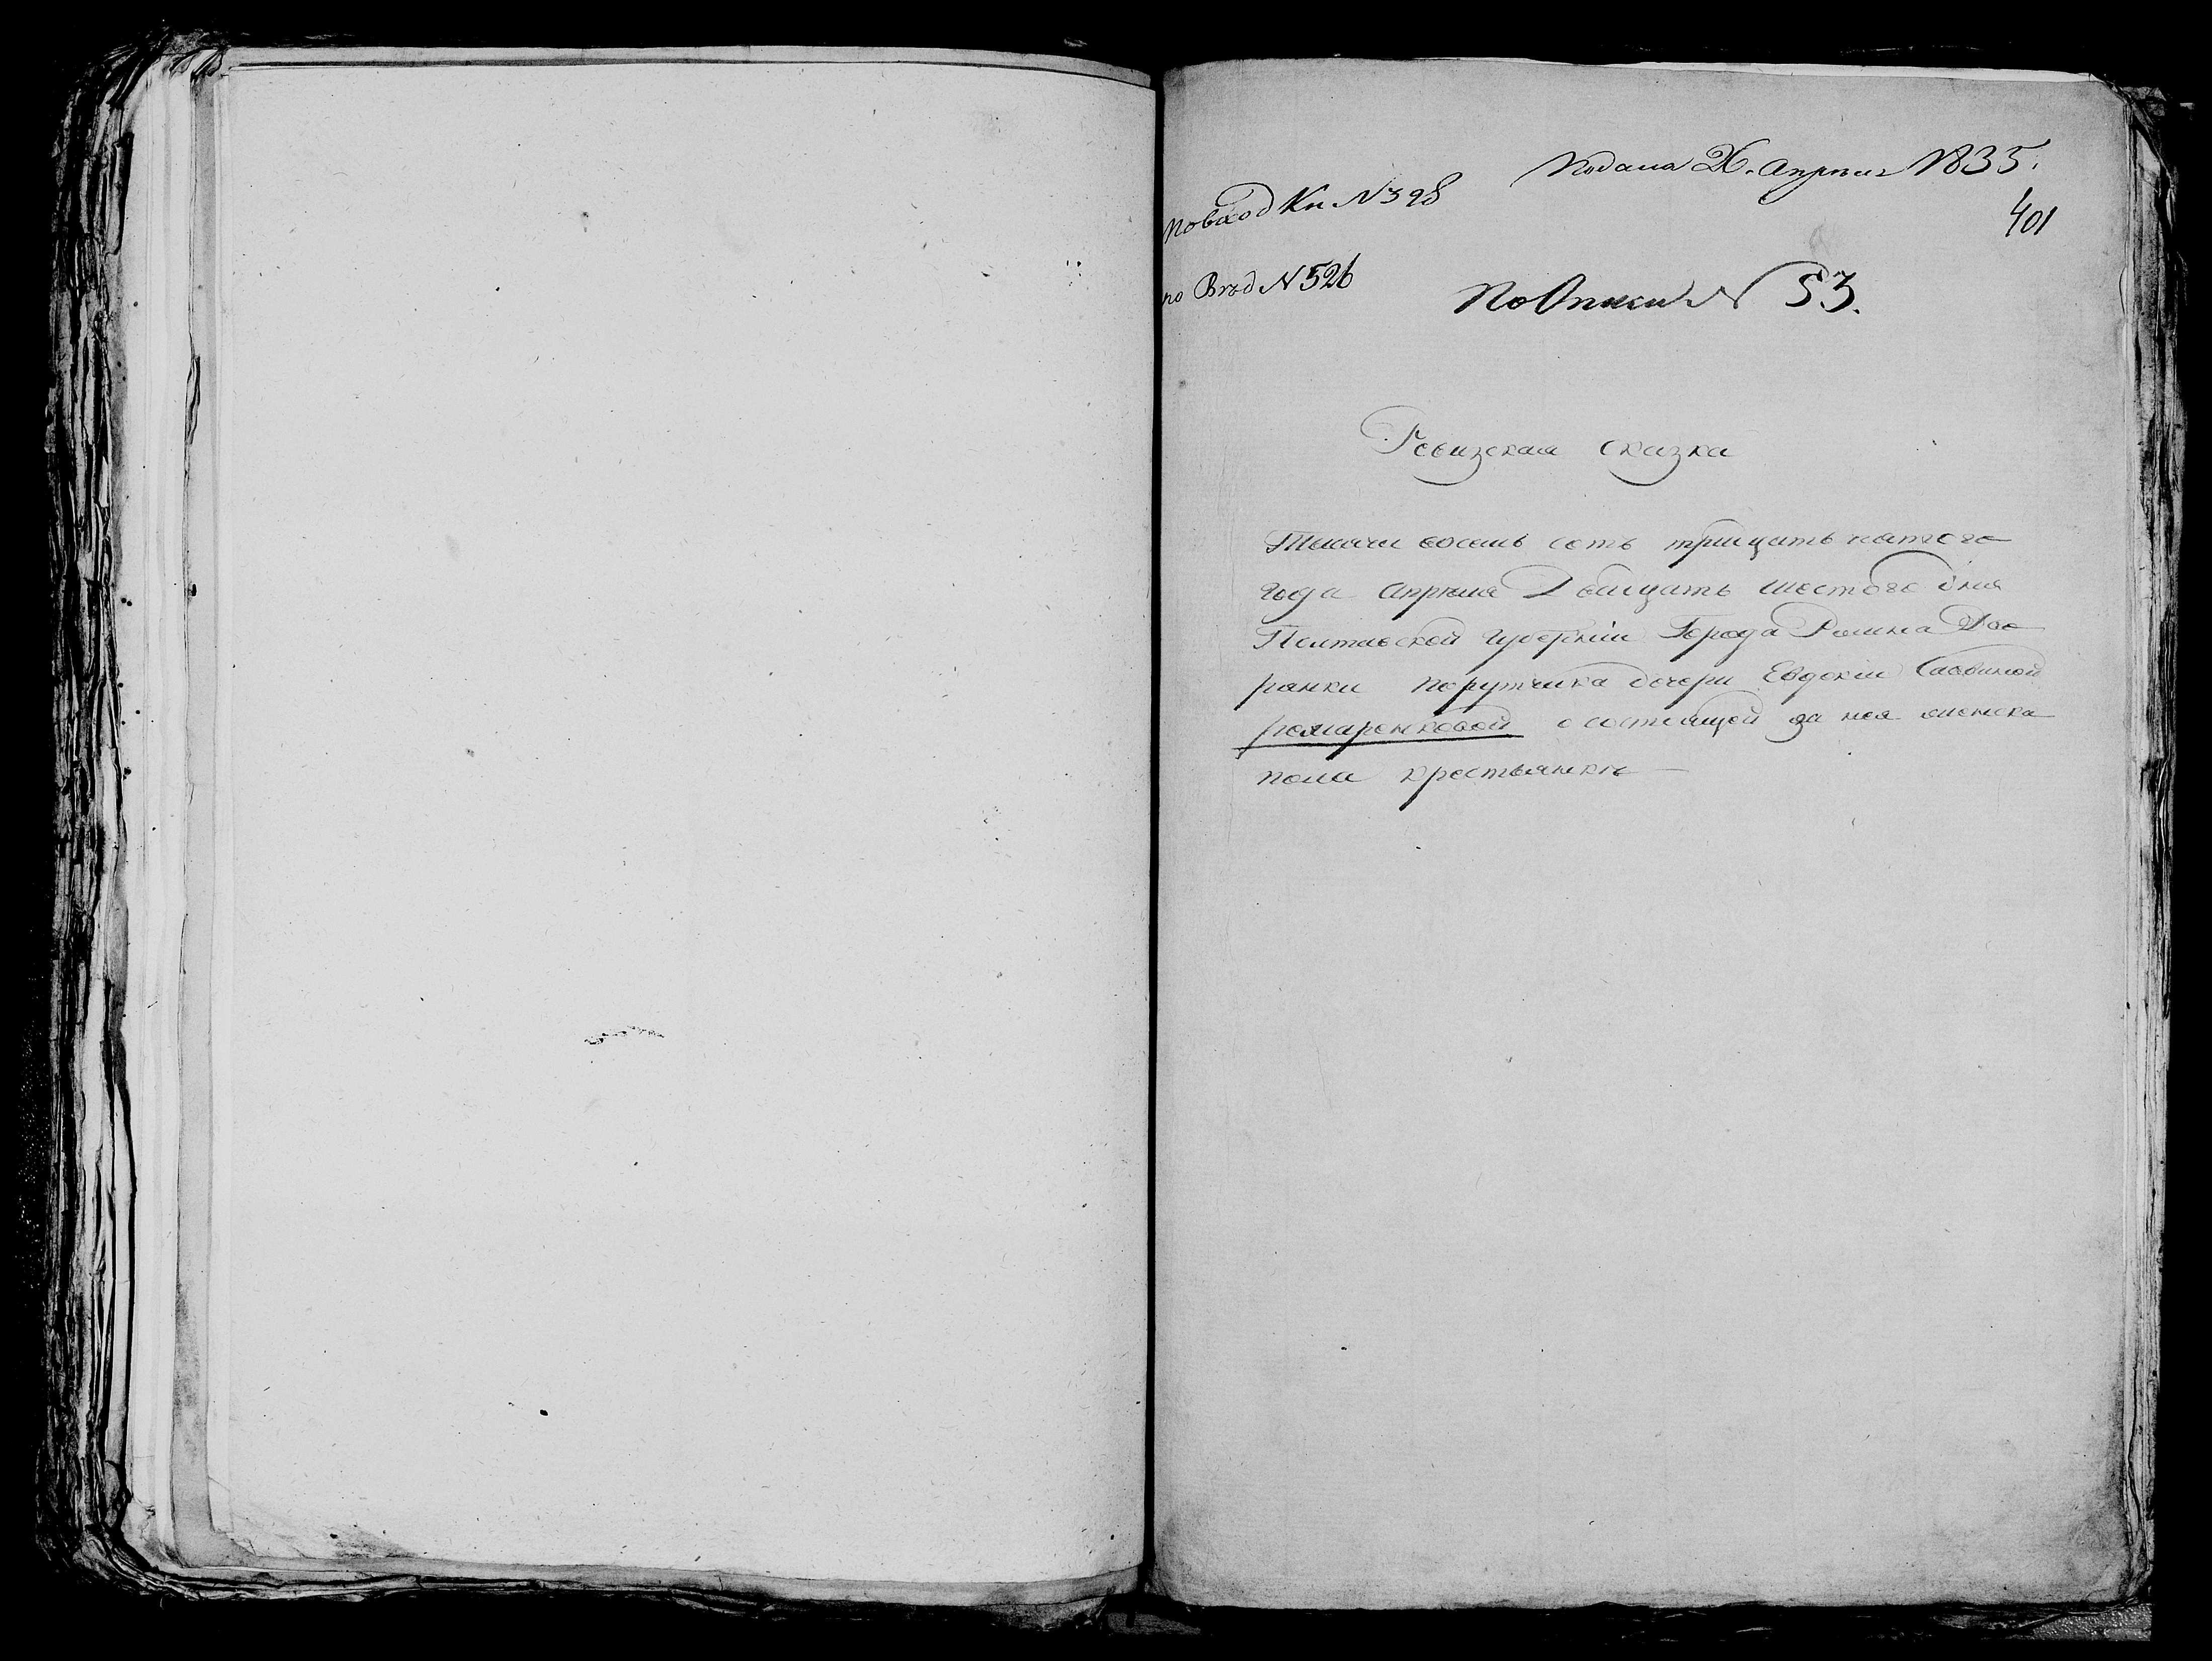 Подана 26. апреля 1835.
По вход Кн. N 398
401
по Вѣд N 526
По Описи N 53.
Ревизская сказка
Тысяча восемь сотъ трицать пятого
года апреля Двацать шестого дня
Полтавской губернии Города Ромна Дво
рянки порутчика дочери Евдокии Саввиной
ромаренковой о состоящей за нея женска
пола крестьянки